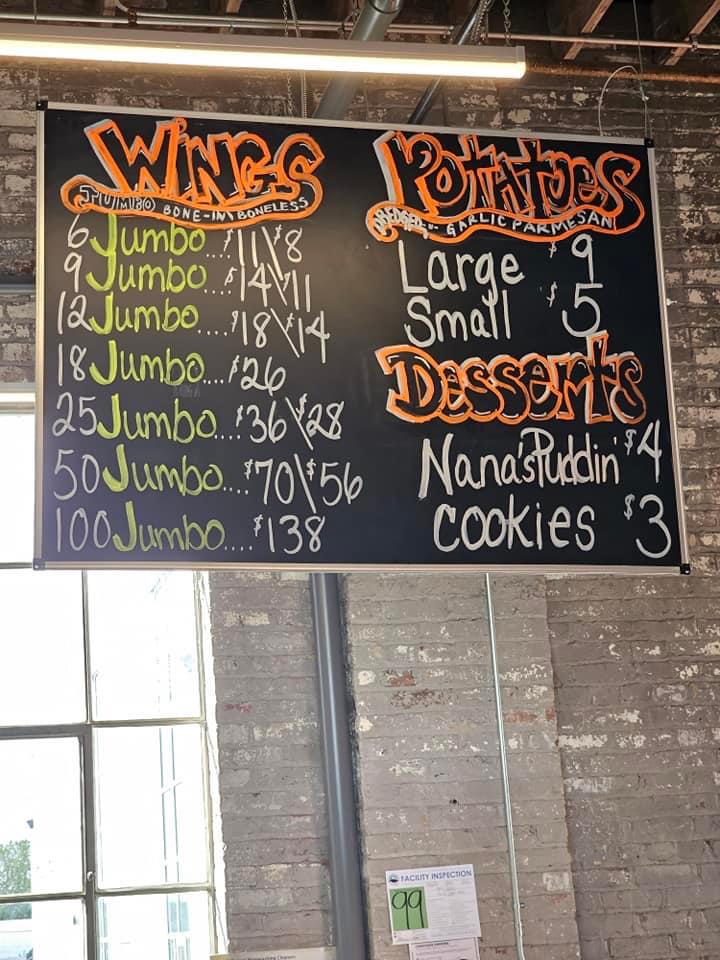 WINGS
JUMBO BONE-IN\BONELESS
6 Jumbo....$11\$8
9 Jumbo....$14\11
12 Jumbo....$18\$14
18 Jumbo....$26
25 Jumbo....$36\$28
50 Jumbo....$70\$56
100 Jumbo....$138
POTATOES
GARLIC PARMESAN
Large $9
Small $5
Desserts
Nana's Puddin' $4
Cookies $3
FACILITY INSPECTION
99